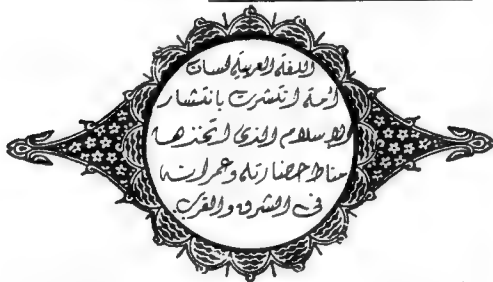 اللغة العربية لسان
أمة انتشرت بانتشار
الإسلام الذى اتخذها
مناط حضارته وعمرانه
فى الشرق والغرب.